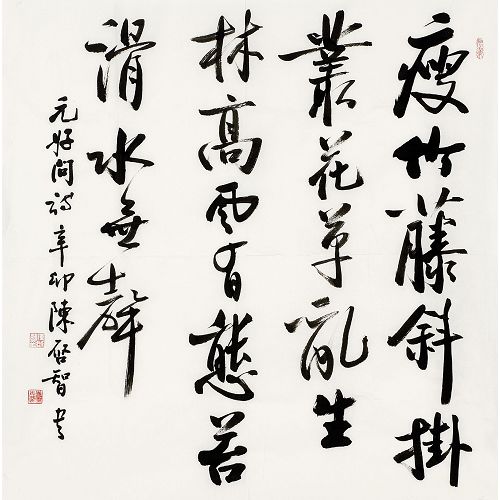 瘦竹藤斜掛
叢花草亂生
林高風有態苔
滑水無聲
元好問詩辛卯陳啟智書